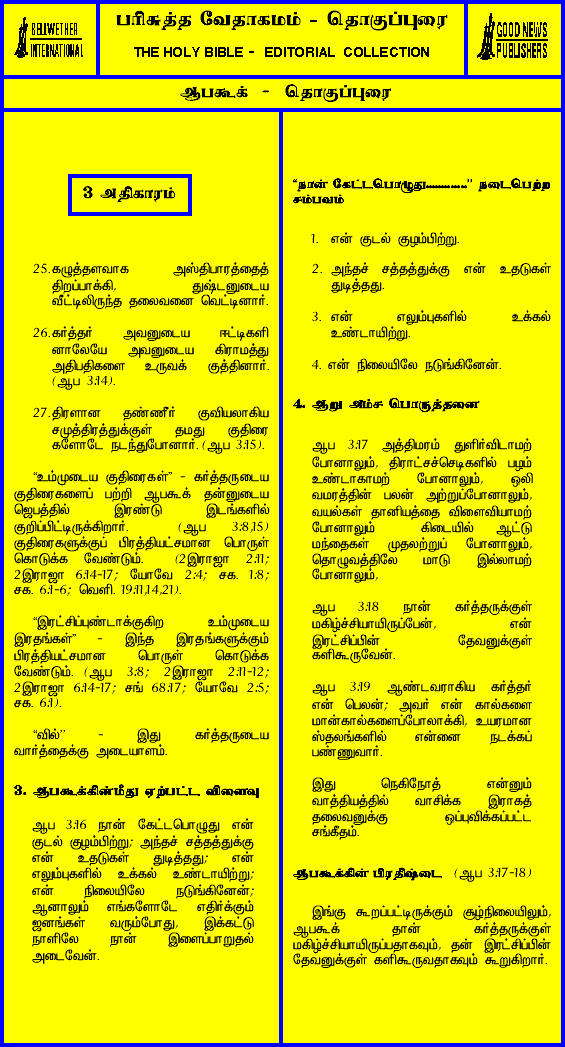 BELLWETHER
INTERNATIONAL
பரிசுத்த வேதாகமம் - தொகுப்புரை
THE HOLY BIBLE - EDITORIAL COLLECTION
GOOD NEWS
PUBLISHERS
ஆபகூக் - தொகுப்புரை
3 அதிகாரம்
25.கழுத்தளவாக அஸ்திபாரத்தைத்
திறப்பாக்கி, துஷ்டனுடைய
வீட்டிலிருந்த தலைவனை வெட்டினார்.
26.கர்த்தர் அவனுடைய ஈட்டிகளி
னாலேயே அவனுடைய கிராமத்து
அதிபதிகளை உருவக் குத்தினார்.
(ஆப 3:14).
27.திரளான தண்ணீர் குவியலாகிய
சமுத்திரத்துக்குள் தமது குதிரை
களோடே நடந்துபோனார். (ஆப 3:15).
“உம்முடைய குதிரைகள்” - கர்த்தருடைய
குதிரைகளைப் பற்றி ஆபகூக் தன்னுடைய
ஜெபத்தில் இரண்டு இடங்களில்
குறிப்பிட்டிருக்கிறார். (ஆப 3:8,15)
குதிரைகளுக்குப் பிரத்தியட்சமான பொருள்
கொடுக்க வேண்டும். (2இராஜா 2:11;
2இராஜா 6:14-17; யோவே 2:4; சக. 1:8;
சக. 6:1-6; வெளி. 19:11,14,21).
“இரட்சிப்புண்டாக்குகிற உம்முடைய
இரதங்கள்” - இந்த இரதங்களுக்கும்
பிரத்தியட்சமான பொருள் கொடுக்க
வேண்டும். (ஆப 3:8; 2இராஜா 2:11-12;
2இராஜா 6:14-17; சங் 68:17; யோவே 2:5;
சக. 6:1).
“வில்” - இது கர்த்தருடைய
வார்த்தைக்கு அடையாளம்.
3. ஆபகூக்கின்மீது ஏற்பட்ட விளைவு
ஆப 3:16 நான் கேட்டபொழுது என்
குடல் குழம்பிற்று; அந்தச் சத்தத்துக்கு
என் உதடுகள் துடித்தது; என்
எலும்புகளில் உக்கல் உண்டாயிற்று;
என் நிலையிலே நடுங்கினேன்;
ஆனாலும் எங்களோடே எதிர்க்கும்
ஜனங்கள் வரும்போது, இக்கட்டு
நாளிலே நான் இளைப்பாறுதல்
அடைவேன்.
“நான் கேட்டபொழுது............” நடைபெற்ற
சம்பவம்
1. என் குடல் குழம்பிற்று.
2. அந்தச் சத்தத்துக்கு என் உதடுகள்
துடித்தது.
3. என் எலும்புகளில் உக்கல்
உண்டாயிற்று.
4. என் நிலையிலே நடுங்கினேன்.
4. ஆறு அம்ச பொருத்தனை
ஆப 3:17 அத்திமரம் துளிர்விடாமற்
போனாலும், திராட்சச்செடிகளில் பழம்
உண்டாகாமற் போனாலும், ஒலி
வமரத்தின் பலன் அற்றுப்போனாலும்,
வயல்கள் தானியத்தை விளைவியாமற்
போனாலும் கிடையில் ஆட்டு
மந்தைகள் முதலற்றுப் போனாலும்,
தொழுவத்திலே மாடு இல்லாமற்
போனாலும்,
ஆப 3:18 நான் கர்த்தருக்குள்
மகிழ்ச்சியாயிருப்பேன், என்
இரட்சிப்பின் தேவனுக்குள்
களிகூருவேன்.
ஆப 3:19 ஆண்டவராகிய கர்த்தர்
என் பெலன்; அவர் என் கால்களை
மான்கால்களைப்போலாக்கி, உயரமான
ஸ்தலங்களில் என்னை நடக்கப்
பண்ணுவார்.
இது நெகிநோத் என்னும்
வாத்தியத்தில் வாசிக்க இராகத்
தலைவனுக்கு ஒப்புவிக்கப்பட்ட
சங்கீதம்.
ஆபகூக்கின் பிரதிஷ்டை (ஆப 3:17-18)
இங்கு கூறப்பட்டிருக்கும் சூழ்நிலையிலும்,
ஆபகூக் தான் கர்த்தருக்குள்
மகிழ்ச்சியாயிருப்பதாகவும், தன் இரட்சிப்பின்
தேவனுக்குள் களிகூருவதாகவும் கூறுகிறார்.